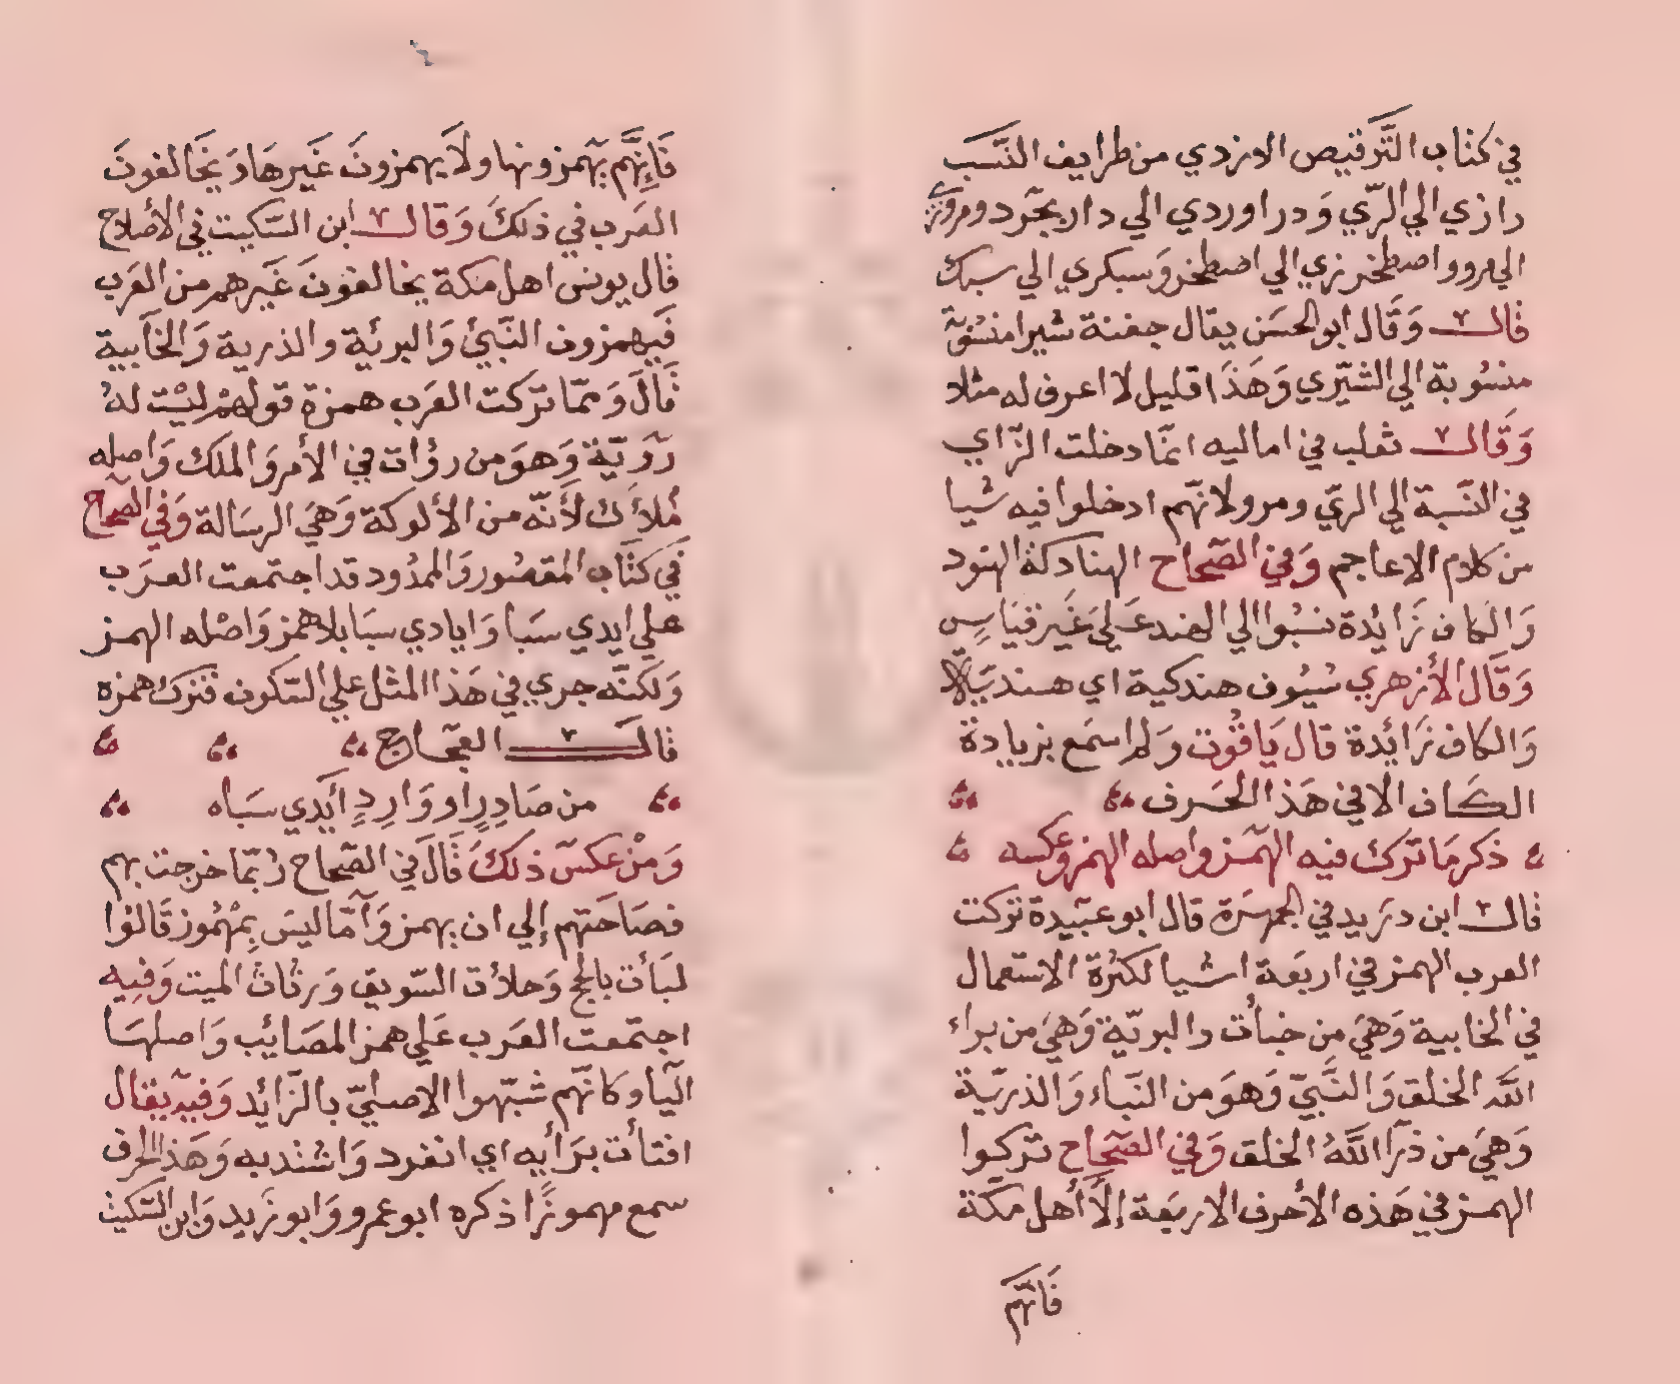 في كتاب التَّرقيص الازدي من طرايف النَّسَب
رازي الي الرّي وَدراوردي الي دارِبجَرد ومروزي
الي مرو واصطخرزي الي اصطخر وَسبكري الي سبك
قالـــ وَقَال ابو الحسَن يقال جفنة شيرا منسُوبَة
منسُوبة الي الشّيري وَهَذَا قليل لا اعرف له مثلا
وَقَالـــ ثعلب في اماليه انّما دخلت الزّاي
في النّسبة الي الريّ ومرو لانّهم ادخلوا فيه شيا
من كلام الاعاجم وَفي الصّحاح الهنادكة الهنود
وَالكاف زَائدة نسبُوا الي الهند عَلي غَير قيَاسِ
وَقَال الأزهري سُيُوف هندكية اي هندية
وَالكاف زَائدة قال يَاقُوت وَلم اسمَع بزيادة
الكَاف الا في هَذا الحَرف
ذكر مَا تَرَك فيه الهَمز واصله الهمز وعكسه
قالـــ ابن دريد في الجمهَرَة قال ابو عبَيدة تركت
العرب الهمز في اربعَة اشيا لكثرة الاستعمال
في الخابية وَهيَ من خبأت والبريّة وَهيَ من براء
الله الخلق وَالنَّبيّ وَهوَ من النّباء وَالذريّة
وَهيَ من ذرَأ اللَّهُ الخلق وَفي الصّحاح تركوا
الهمز في هَذه الأحرف الاربَعَة إلاَّ أهل مكّة
فَانّهم
فَإِنَّهم يَهمزونها ولاَ يهمزونَ غَيرهَا وَيخَالفونَ
العَرب في ذلكَ وَقالـــ ابن السّكيت في الأصلاح
قال يونس اهل مكة يخالفونَ غَيرهم من العَرب
فَيهمزون النَّبئ وَالبريئة والذرية وَالخَابية
قَالَ وَممّا تركت العَرب همزة قولهُمْ ليْسَت لهُ
رَوِيّة وَهوَ من روُات في الأمر وَالملك وَاصله
مَلأَك لأنّه من الألوكة وَهيَ الرسَالة وَفي الصّحاح
في كتَاب المقصُور وَالممدُود قد اجتمعت العرَب
علي ايدي سَبا وَايادي سبَا بلا همز وَاصْله الهمز
وَلكنّه جري في هَذا المثل علي السّكون فترك همزه
قالـــ العجّاج
من صَادِرٍ او وَارِدٍ أَيْدي سبَاه
وَمنْ عكسَ ذلكَ قَالَ في الصّحاح رُبّما خرجت بهم
فصَاحَتهم إلي ان يهمز وَا مَا ليسَ بِمْهمُوز قَالوُا
لبَأت بالحج وَحلأت السّويق وَرثات الميت وَفيه
اجتمعت العَرب عَلي همز المصَائب وَاصلهَا
اليَا وكانّهم شبّهوا الاصليّ بالزّائد وَفيه يقال
افتأت برَأيه اي انفرد وَاشتد به وَهَذا الحرف
سمع مهموزًا ذكره ابو عمرو وَابو زَيد وَابن السّكيت